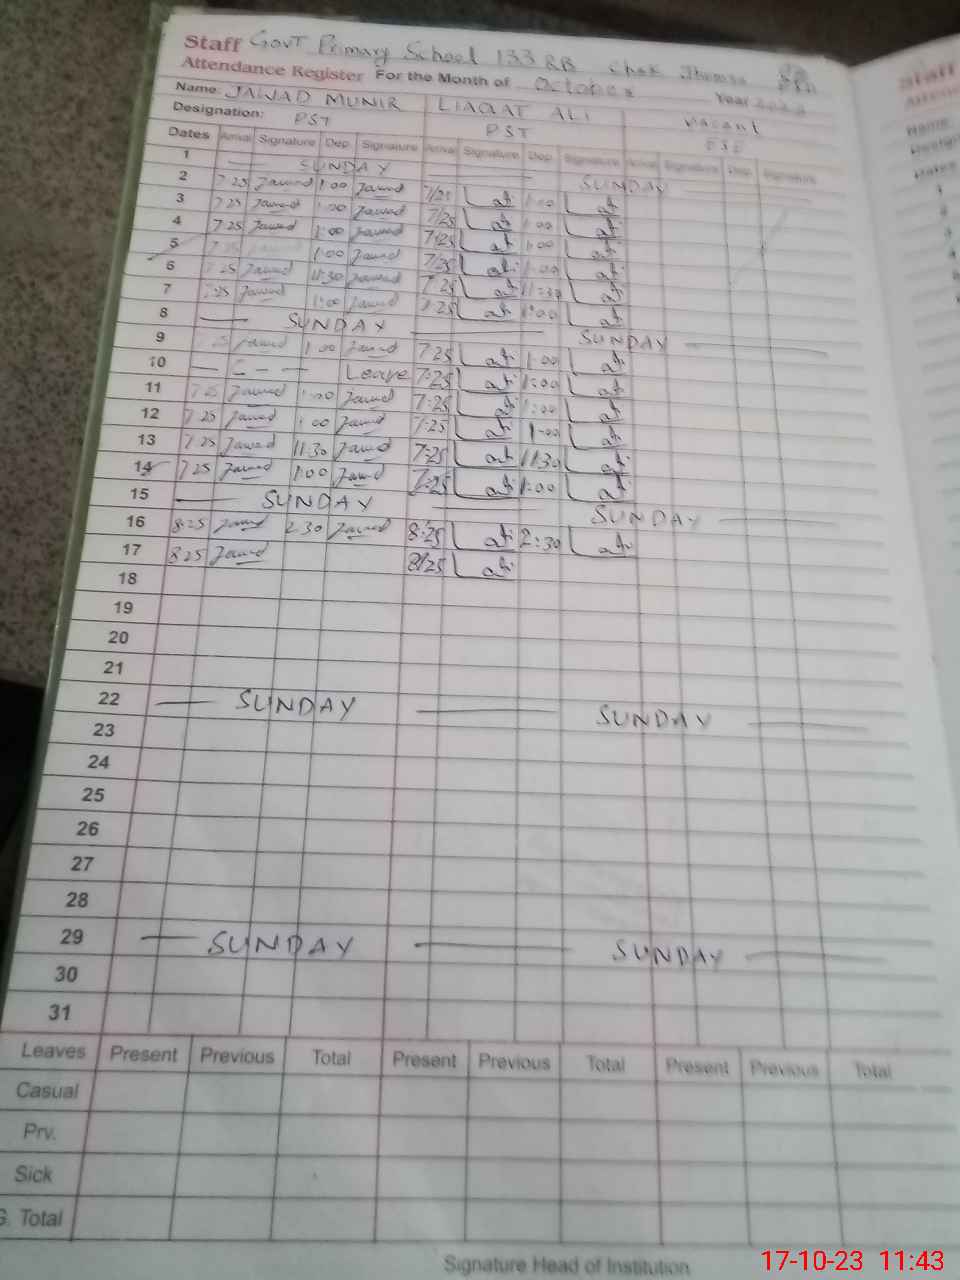 Staff Govt Primary School 133 RB Chak Jhumra
Attendance Register For the Month of October Year 2023
Name: JAWAD MUNIR LIAQAT ALI vacant
Designation: PST PST
Dates Arrival Signature Dep. Signature Arrival Signature Dep. Signature Arrival Signature Dep. Signature
1 SUNDAY SUNDAY
2 7 25 Jawad 1:00 Jawad 7/25 1:00
3 7 25 Jawad 1:00 Jawad 7/25 1:00
4 7 25 Jawad 1:00 Jawad 7/25 1:00
5 7 25 Jawad 1:00 Jawad 7/25 1:00
6 7 25 Jawad 11:30 Jawad 7 25 11:30
7 7:25 Jawad 1:00 Jawad 7:25 1:00
8 SUNDAY SUNDAY
9 25 Jawad 1 00 Jawad 7:25 1:00
10 — C — — Leave 7:25 1:00
11 7 25 Jawad 1:00 Jawad 7:25 1:00
12 7 25 Jawad 1:00 Jawad 7:25 1:00
13 7.25 Jawad 11:30 Jawad 7:25 11:30
14 7 25 Jawad 1:00 Jawad 7:25 1:00
15 SUNDAY SUNDAY
16 8:25 Jawad 2:30 Jawad 8:25 2:30
17 8 25 Jawad 8/25
18
19
20
21
22 SUNDAY SUNDAY
23
24
25
26
27
28
29 SUNDAY SUNDAY
30
31
Leaves Present Previous Total Present Previous Total Present Previous Total
Casual
Prv.
Sick
G. Total
Signature Head of Institution
17-10-23 11:43